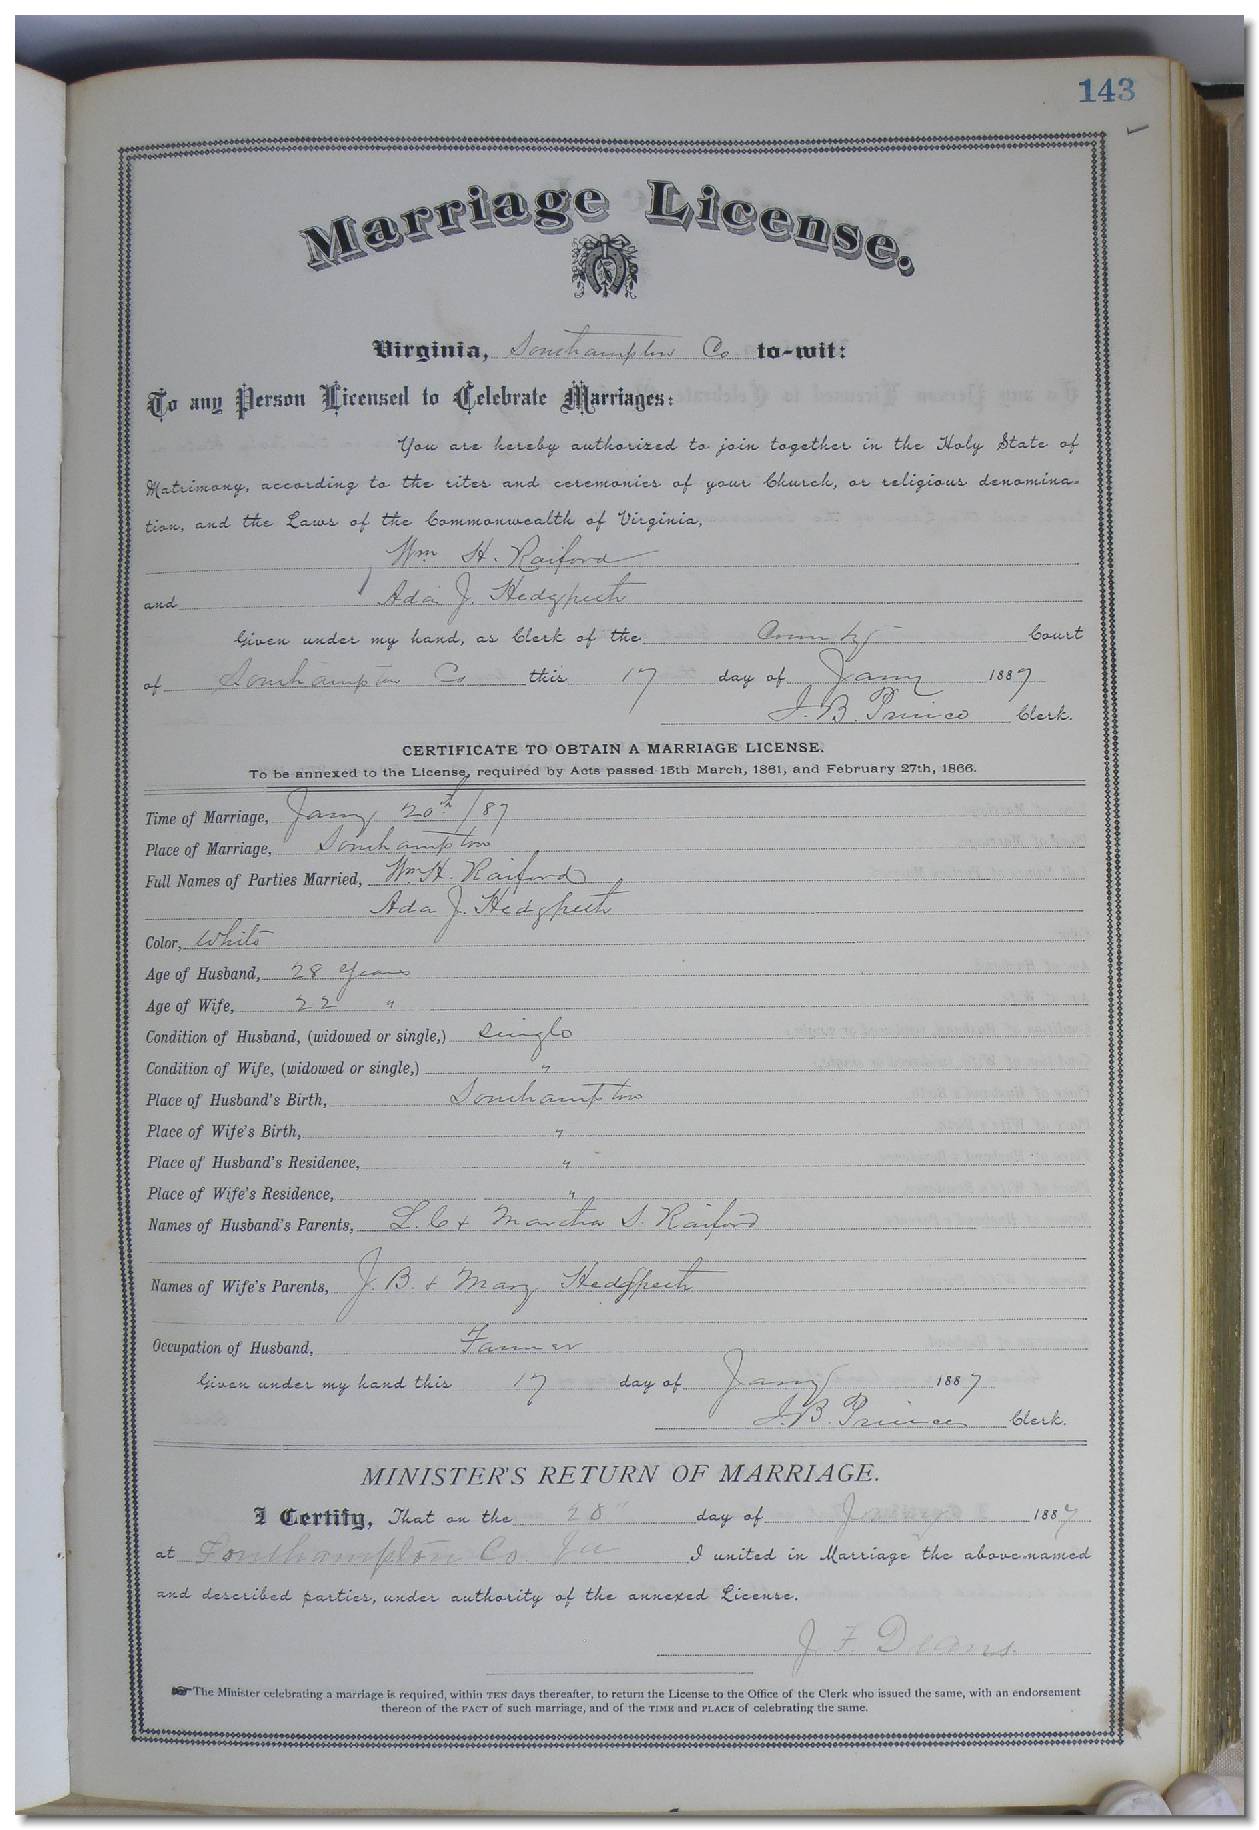 143
Marriage License.
Virginia, Southampton Co to-wit:
To any Person Licensed to Celebrate Marriages:
You are hereby authorized to join together in the Holy State of
Matrimony, according to the rites and ceremonies of your Church, or religious denomina-
tion, and the Laws of the Commonwealth of Virginia,
Wm H. Raiford
and Ada J. Hedgpeth
Given under my hand, as Clerk of the County Court
of Southampton Co this 17 day of Jany 1887
J. B. Prince Clerk.
CERTIFICATE TO OBTAIN A MARRIAGE LICENSE.
To be annexed to the License, required by Acts passed 15th March, 1861, and February 27th, 1866.
Time of Marriage, Jany 20th /87
Place of Marriage, Southampton
Full Names of Parties Married, Wm H. Raiford
Ada J. Hedgpeth
Color, White
Age of Husband, 28 years
Age of Wife, 22 "
Condition of Husband, (widowed or single,) single
Condition of Wife, (widowed or single,) "
Place of Husband's Birth, Southampton
Place of Wife's Birth, "
Place of Husband's Residence, "
Place of Wife's Residence, "
Names of Husband's Parents, L. C & Martha S. Raiford
Names of Wife's Parents, J. B. & Mary Hedgpeth
Occupation of Husband, Farmer
Given under my hand this 17 day of Jany 1887
J. B. Prince Clerk.
MINISTER'S RETURN OF MARRIAGE.
I Certify, That on the day of Jany 1887
at Southampton Co Va I united in Marriage the above-named
and described parties, under authority of the annexed License.
J. F. Deans.
The Minister celebrating a marriage is required, within TEN days thereafter, to return the License to the Office of the Clerk who issued the same, with an endorsement
thereon of the FACT of such marriage, and of the TIME and PLACE of celebrating the same.